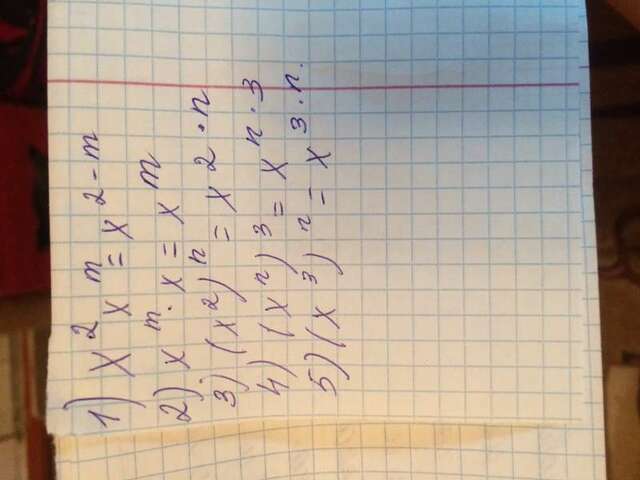 1) x² xᵐ = x²⁻ᵐ
2) xᵐ · x = xᵐ
3) (x²)ⁿ = x² ˙ ⁿ
4) (xⁿ)³ = xⁿ ˙ ³
5) (x³)ⁿ = x³ ˙ ⁿ.